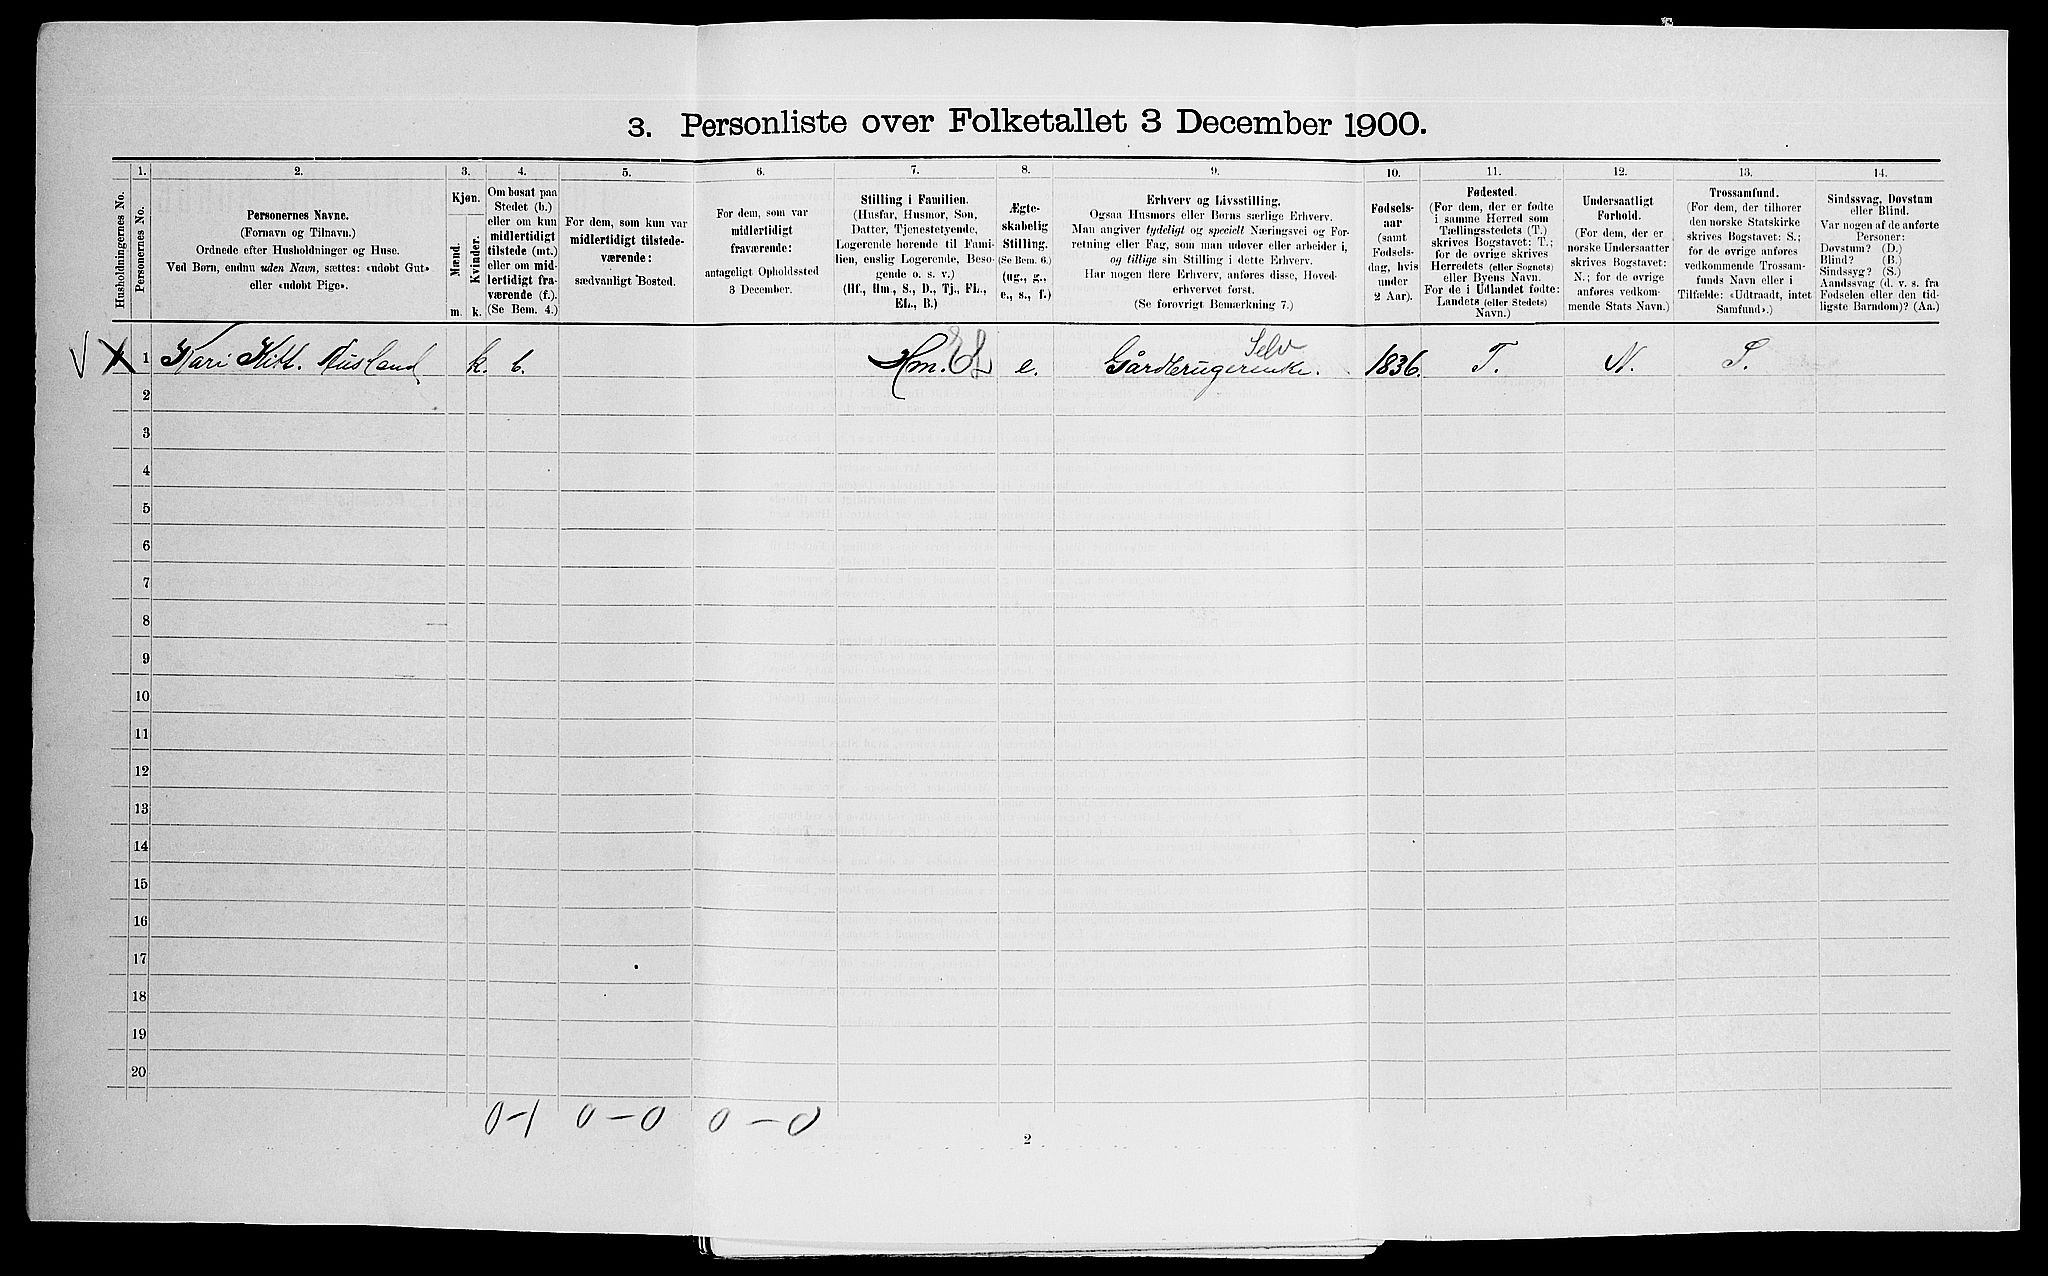 3. Personliste over Folketallet 3 December 1900.
Husholdningernes No.
1.
Personernes No.
2.
Personernes Navne.
(Fornavn og Tilnavn.)
Ordnede efter Husholdninger og Huse.
Ved Børn, endnu uden Navn, sættes: «udøbt Gut»
eller «udøbt Pige».
3.
Kjøn.
Mænd.
Kvinder.
m. k.
4.
Om bosat paa
Stedet (b.)
eller om kun
midlertidigt
tilstede (mt.)
eller om mid-
lertidigt fra-
værende (f.).
(Se Bem. 4.)
5.
For dem, som kun var
midlertidigt tilstede-
værende:
sædvanligt Bosted.
6.
For dem, som var
midlertidigt
fraværende:
antageligt Opholdssted
3 December.
7.
Stilling i Familien.
(Husfar, Husmor, Søn,
Datter, Tjenestetyende,
Logerende hørende til Fami-
lien, enslig Logerende, Besø-
gende o. s. v.)
(Hf., Hm., S., D., Tj., FL.,
EL., B.)
8.
Ægte-
skabelig
Stilling.
(Se Bem. 6.)
(ug., g.,
e., s., f.)
9.
Erhverv og Livsstilling.
Ogsaa Husmors eller Børns særlige Erhverv.
Man angiver tydeligt og specielt Næringsvei og For-
retning eller Fag, som man udøver eller arbeider i,
og tillige sin Stilling i dette Erhverv.
Har nogen flere Erhverv, anføres disse, Hoved-
erhvervet først.
(Se forøvrigt Bemærkning 7.)
10.
Fødsels-
aar
(samt
Fødsels-
dag, hvis
under
2 Aar).
11.
Fødested.
(For dem, der er fødte
i samme Herred som
Tællingsstedets (T.)
skrives Bogstavet: T.;
for de øvrige skrives
Herredets (eller Sognets)
eller Byens Navn.
For de i Udlandet fødte:
Landets (eller Stedets)
Navn.)
12.
Undersaatligt
Forhold.
(For dem, der er
norske Undersaatter
skrives Bogstavet:
N.; for de øvrige
anføres vedkom-
mende Stats Navn.)
13.
Trossamfund.
(For dem, der tilhører
den norske Statskirke
skrives Bogstavet: S.;
for de øvrige anføres
vedkommende Trossam-
funds Navn eller i
Tilfælde: «Udtraadt, intet
Samfund».)
14.
Sindssvag, Døvstum
eller Blind.
Var nogen af de anførte
Personer:
Døvstum? (D.)
Blind? (B.)
Sindssyg? (S.)
Aandssvag (d. v. s. fra
Fødselen eller den tid-
ligste Barndom)? (Aa.)
1 Kari Kitt. k. b. Hm. EL e. Gårdbrugerenke. Selv 1836. T. N. S.
2
3
4
5
6
7
8
9
10
11
12
13
14
15
16
17
18
19
20
0-1 0-0 0-0
2